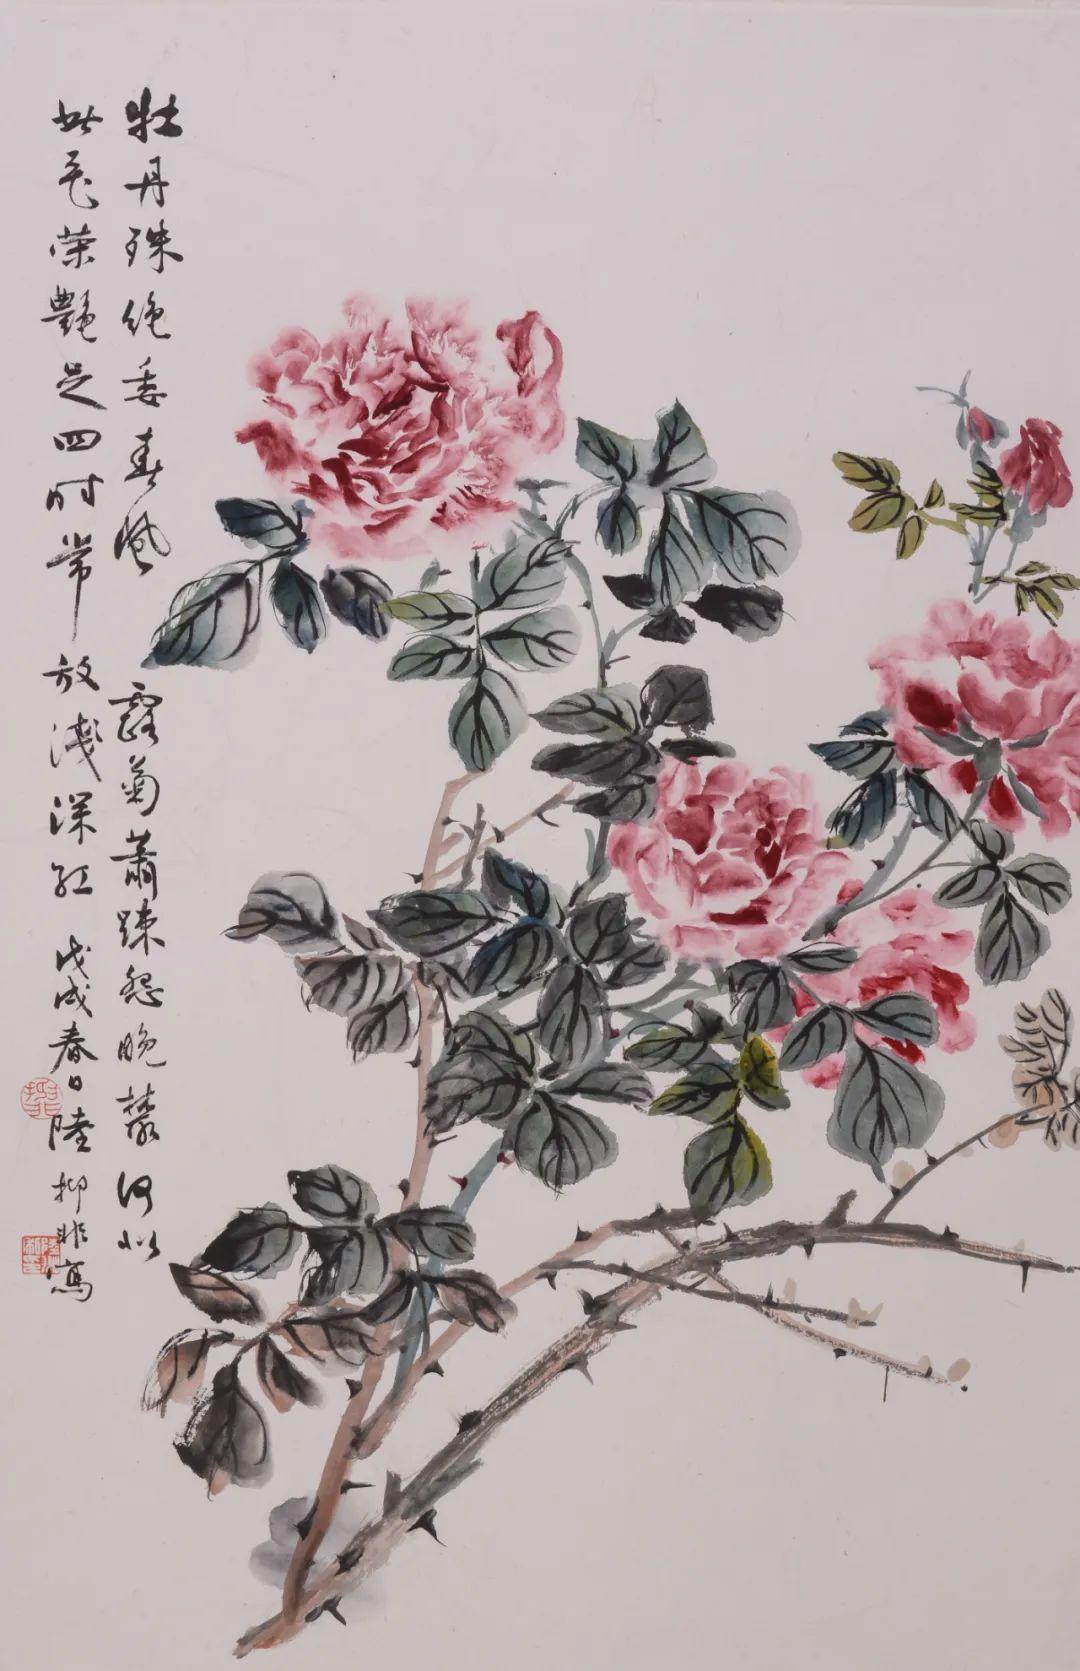 牡丹殊绝委春风 露菊萧疎怨晚丛何似
此花荣艳足四时常放浅深红 戊戌春日陆抑非写